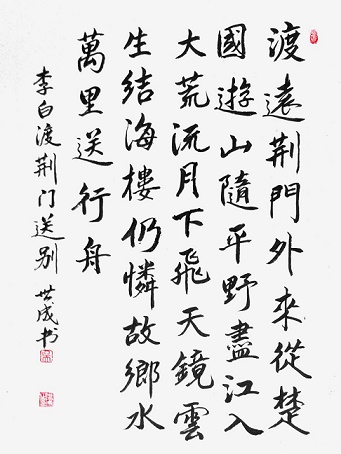 渡遠荆門外來從楚
國遊山隨平野盡江入
大荒流月下飛天鏡雲
生結海樓仍憐故鄉水
萬里送行舟
李白渡荆门送别 世成书